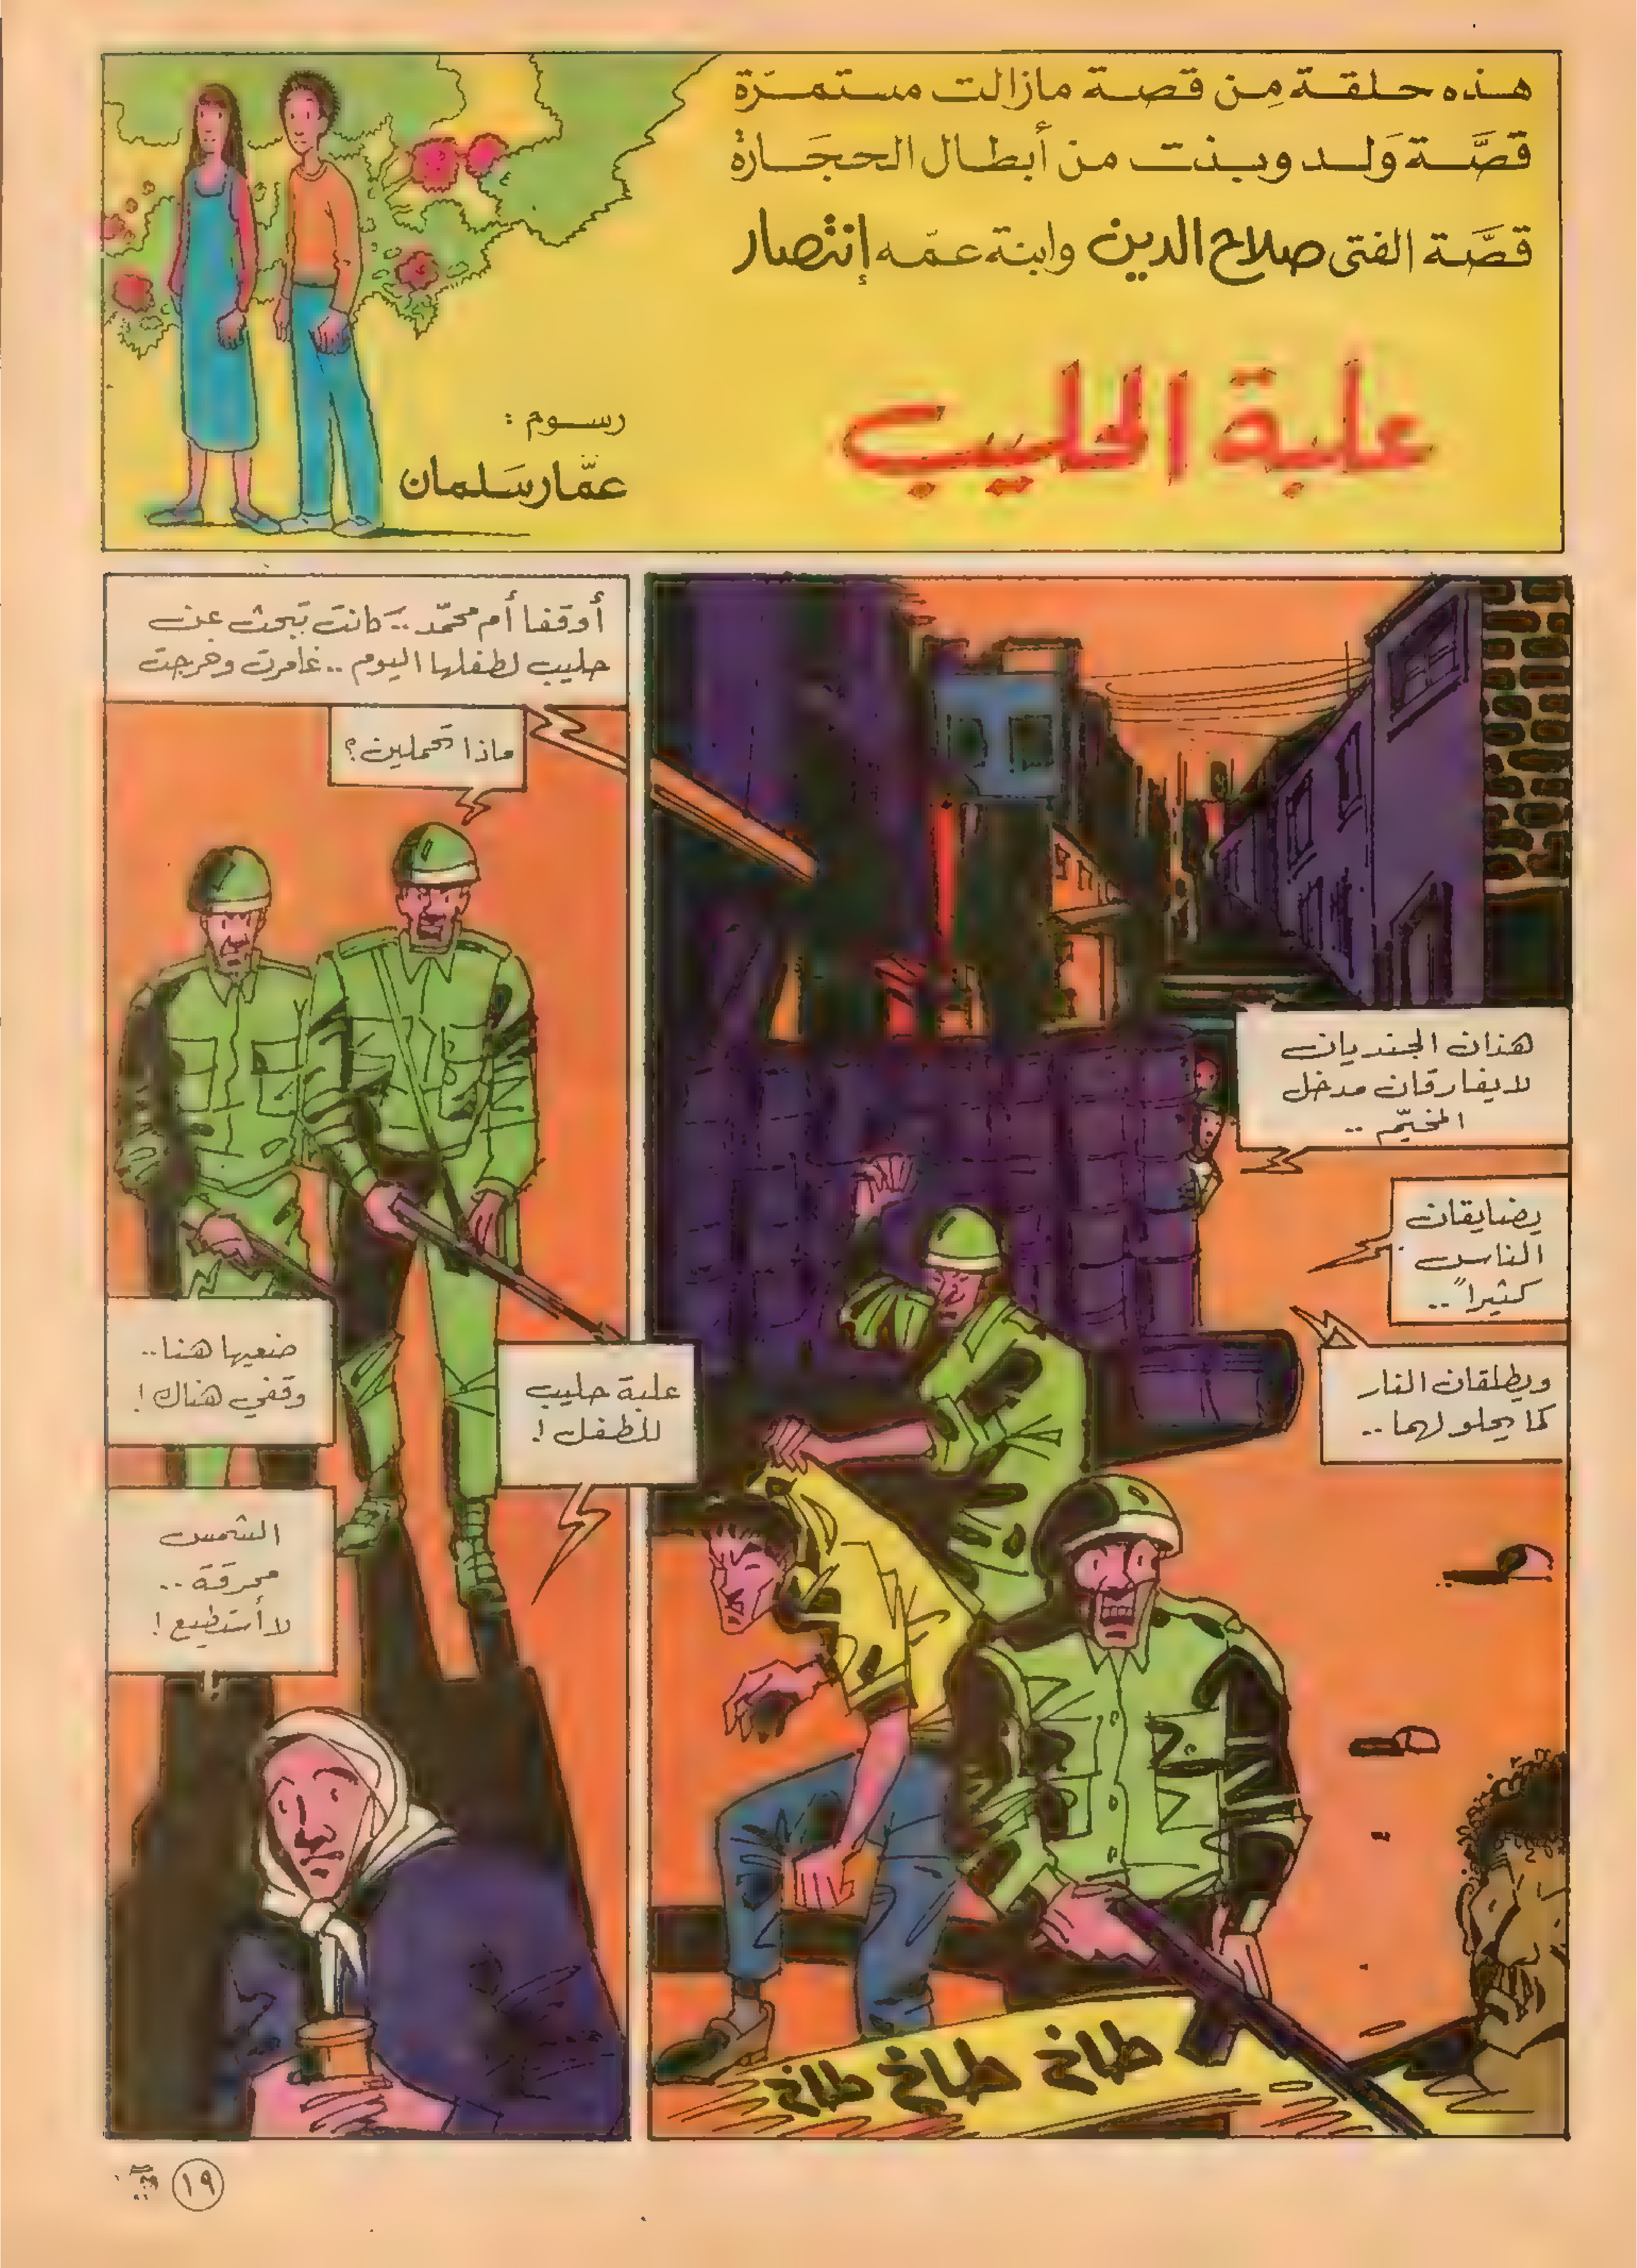 هذه حلقة مِن قصة مازالت مستمرّة
قصَّة وَلد وبنت من أبطال الحجَارة
قصَّة الفتى صلاح الدين وابنة عمّه إنتصار
علبة الحليب
رسوم :
عمّار سَلمان
هذان الجنديان
لا يفارقان مدخل
المخيّم ..
يضايقان
الناس
كثيراً ..
ويطلقان النار
كما يحلو لهما ..
طاخ طاخ طاخ
أوقفا أم محمّد .. كانت تبحث عن
حليب لطفلها اليوم .. غامرت وخرجت
ماذا تحملين ؟
علبة حليب
للطفل !
ضعيها هنا ..
وقفي هناك !
الشمس
محرقة ..
لا أستطيع !
١٩